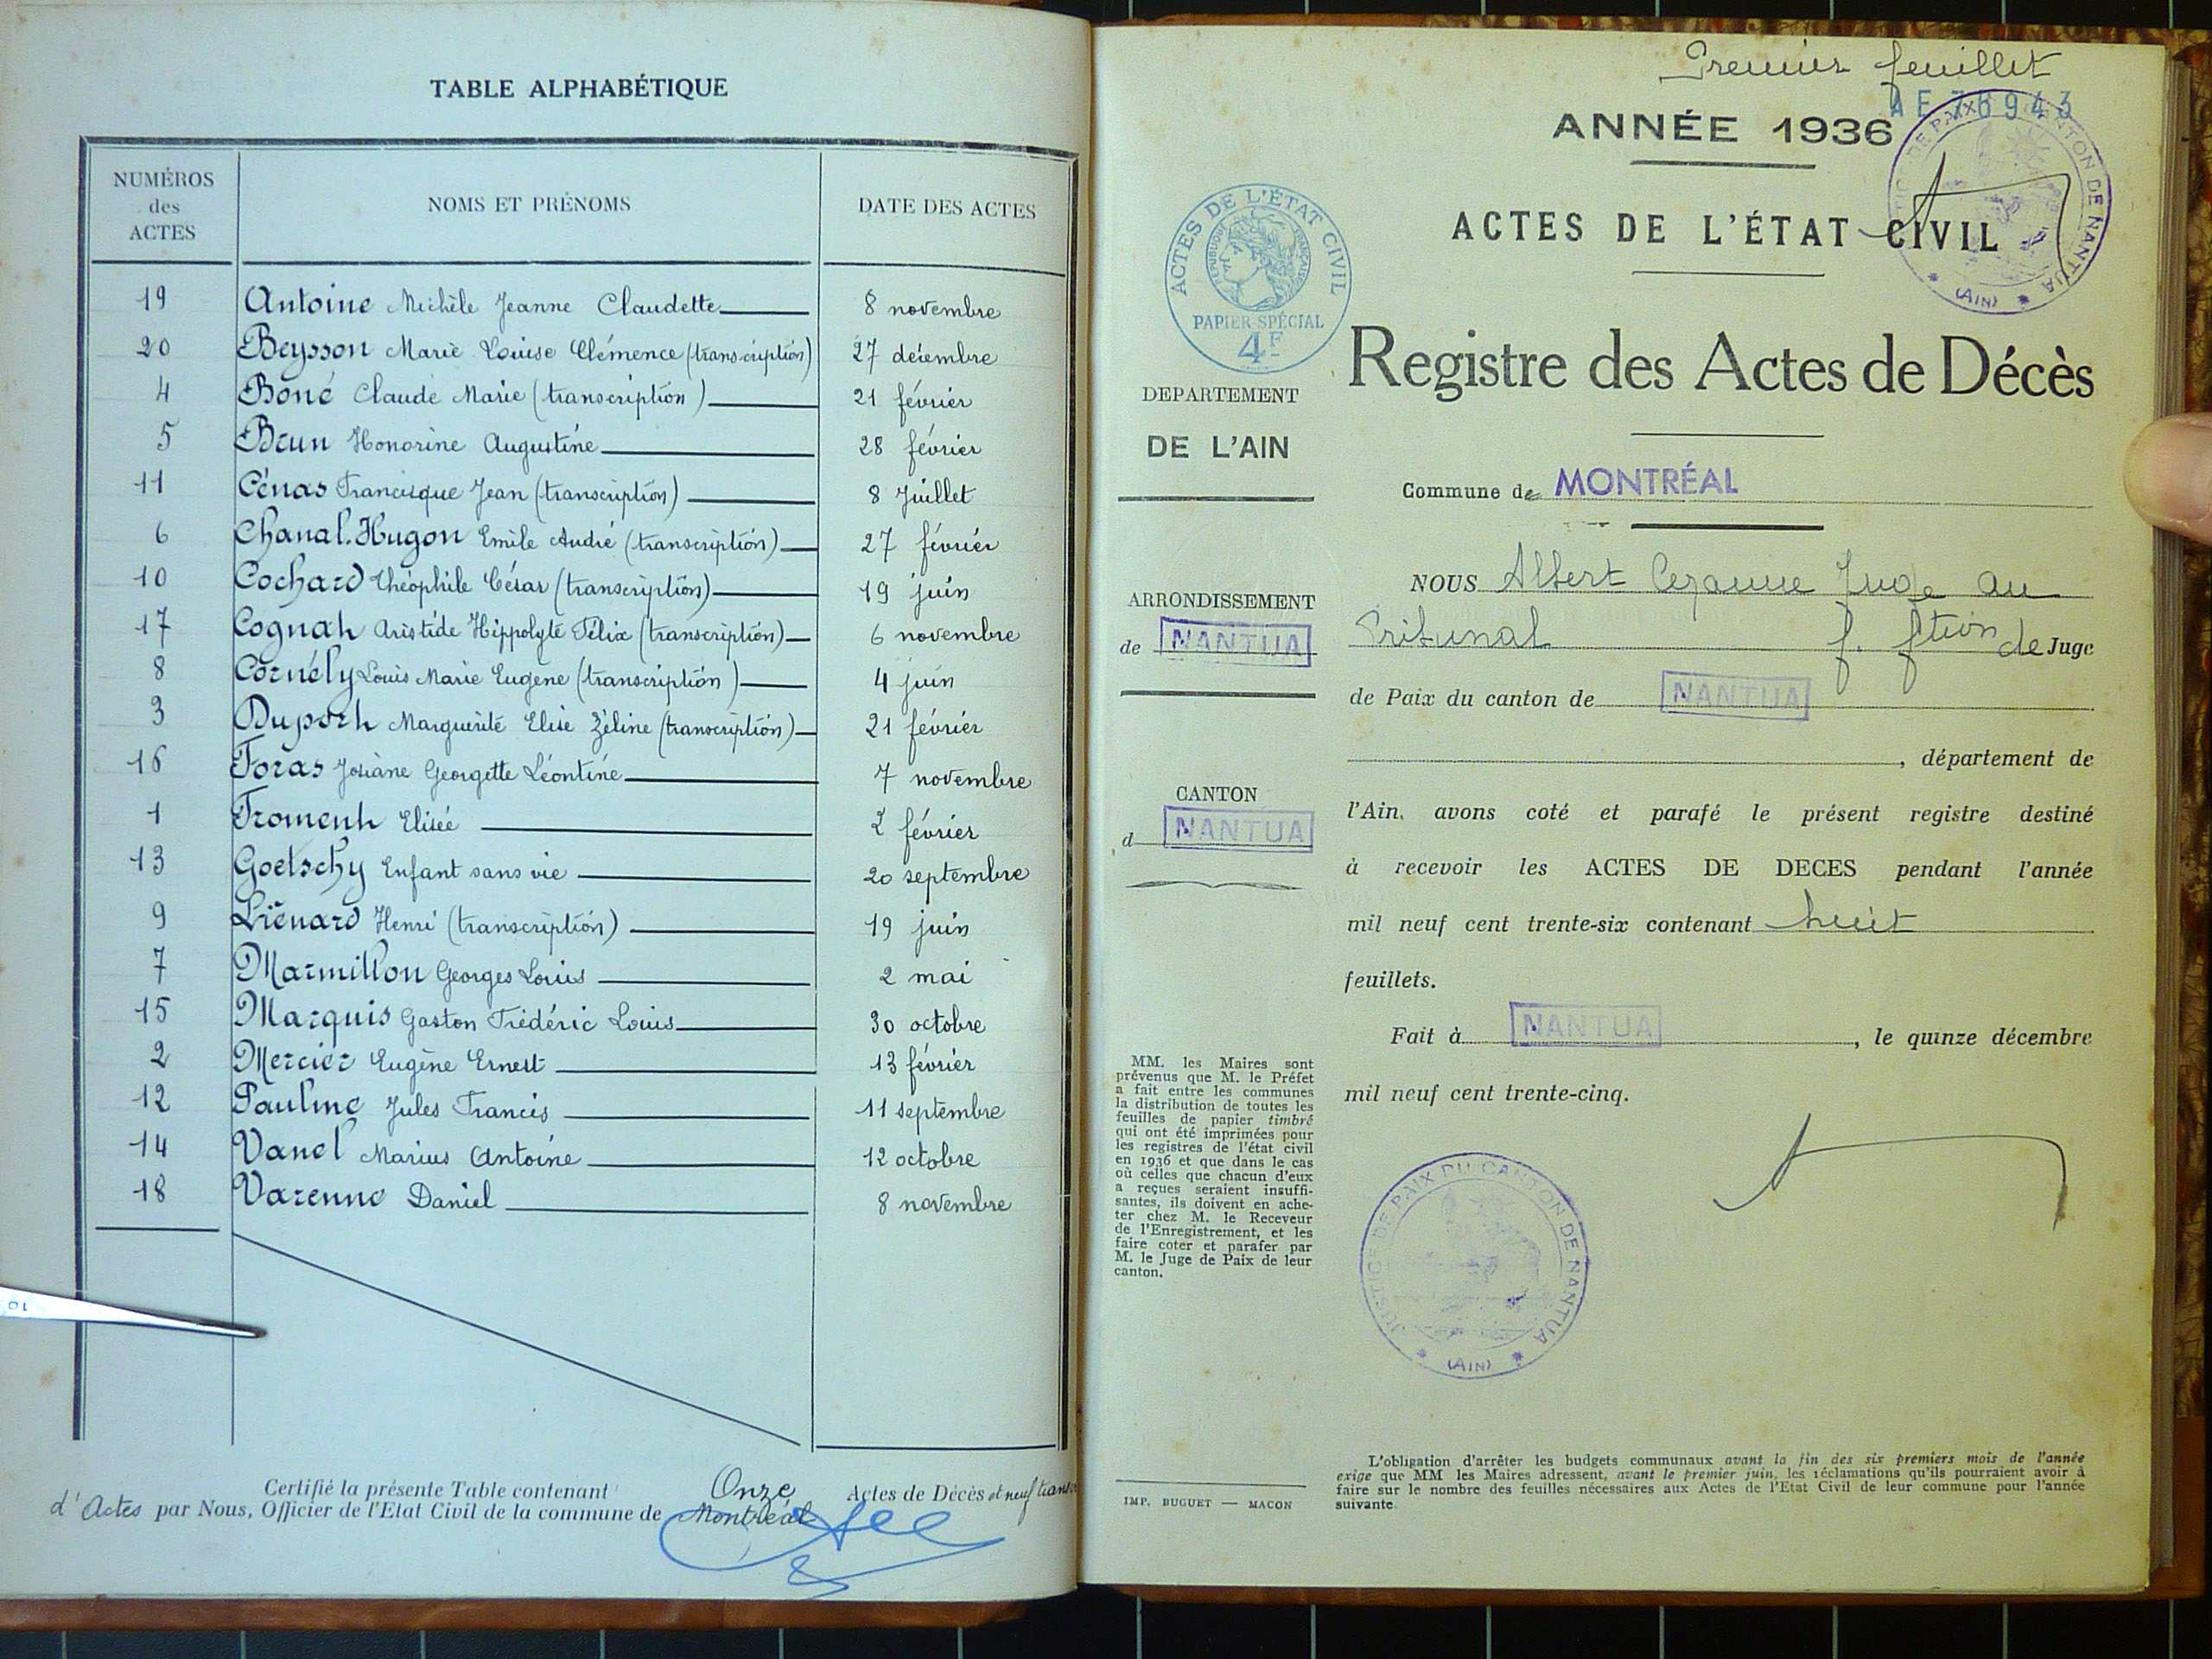 TABLE ALPHABÉTIQUE
NUMÉROS des ACTES NOMS ET PRÉNOMS DATE DES ACTES
19 Antoine Michèle Jeanne Claudette 8 novembre
20 Beysson Marie Louise Clémence (transcription) 27 décembre
4 Boné Claude Marie (transcription) 21 février
5 Brun Honorine Augustine 28 février
11 Cénas Francisque Jean (transcription) 8 Juillet
6 Chanal-Hugon Emile André (transcription) 27 février
10 Cochard Théophile César (transcription) 19 juin
17 Cognat Aristide Hippolyte Félix (transcription) 6 novembre
8 Cornély Louis Marie Eugène (transcription) 4 juin
3 Duport Marguerite Elise Zéline (transcription) 21 février
16 Foras Josiane Georgette Léontine 7 novembre
1 Froment Elisée 2 février
13 Goetschy Enfant sans vie 20 septembre
9 Liénard Henri (transcription) 19 juin
7 Marmillon Georges Louis 2 mai
15 Marquis Gaston Frédéric Louis 30 octobre
2 Mercier Eugène Ernest 13 février
12 Pauline Jules Francis 11 septembre
14 Vanel Marius Antoine 12 octobre
18 Varenne Daniel 8 novembre
10
Certifié la présente Table contenant Onze Actes de Décès et neuf trans
d'Actes par Nous, Officier de l'Etat Civil de la commune de Montréal
Premier feuillet
AF 76943
ANNÉE 1936
ACTES DE L'ÉTAT CIVIL
JUSTICE DE PAIX DU CANTON DE NANTUA
(AIN)
ACTES DE L'ÉTAT CIVIL
RÉPUBLIQUE FRANÇAISE
PAPIER SPÉCIAL
4F
Registre des Actes de Décès
DEPARTEMENT
DE L'AIN
Commune de MONTRÉAL
ARRONDISSEMENT
de NANTUA
CANTON
d NANTUA
NOUS Albert Cezanne Juge au
Tribunal f. ftion de Juge
de Paix du canton de NANTUA
, département de
l'Ain, avons coté et parafé le présent registre destiné
à recevoir les ACTES DE DECES pendant l'année
mil neuf cent trente-six contenant huit
feuillets.
Fait à NANTUA, le quinze décembre
mil neuf cent trente-cinq.
MM. les Maires sont
prévenus que M. le Préfet
a fait entre les communes
la distribution de toutes les
feuilles de papier timbré
qui ont été imprimées pour
les registres de l'état civil
en 1936 et que dans le cas
où celles que chacun d'eux
a reçues seraient insuffi-
santes, ils doivent en ache-
ter chez M. le Receveur
de l'Enregistrement, et les
faire coter et parafer par
M. le Juge de Paix de leur
canton.
JUSTICE DE PAIX DU CANTON DE NANTUA
(AIN)
IMP. BUGUET — MACON
L'obligation d'arrêter les budgets communaux avant la fin des six premiers mois de l'année
exige que MM les Maires adressent, avant le premier juin, les réclamations qu'ils pourraient avoir à
faire sur le nombre des feuilles nécessaires aux Actes de l'Etat Civil de leur commune pour l'année
suivante.